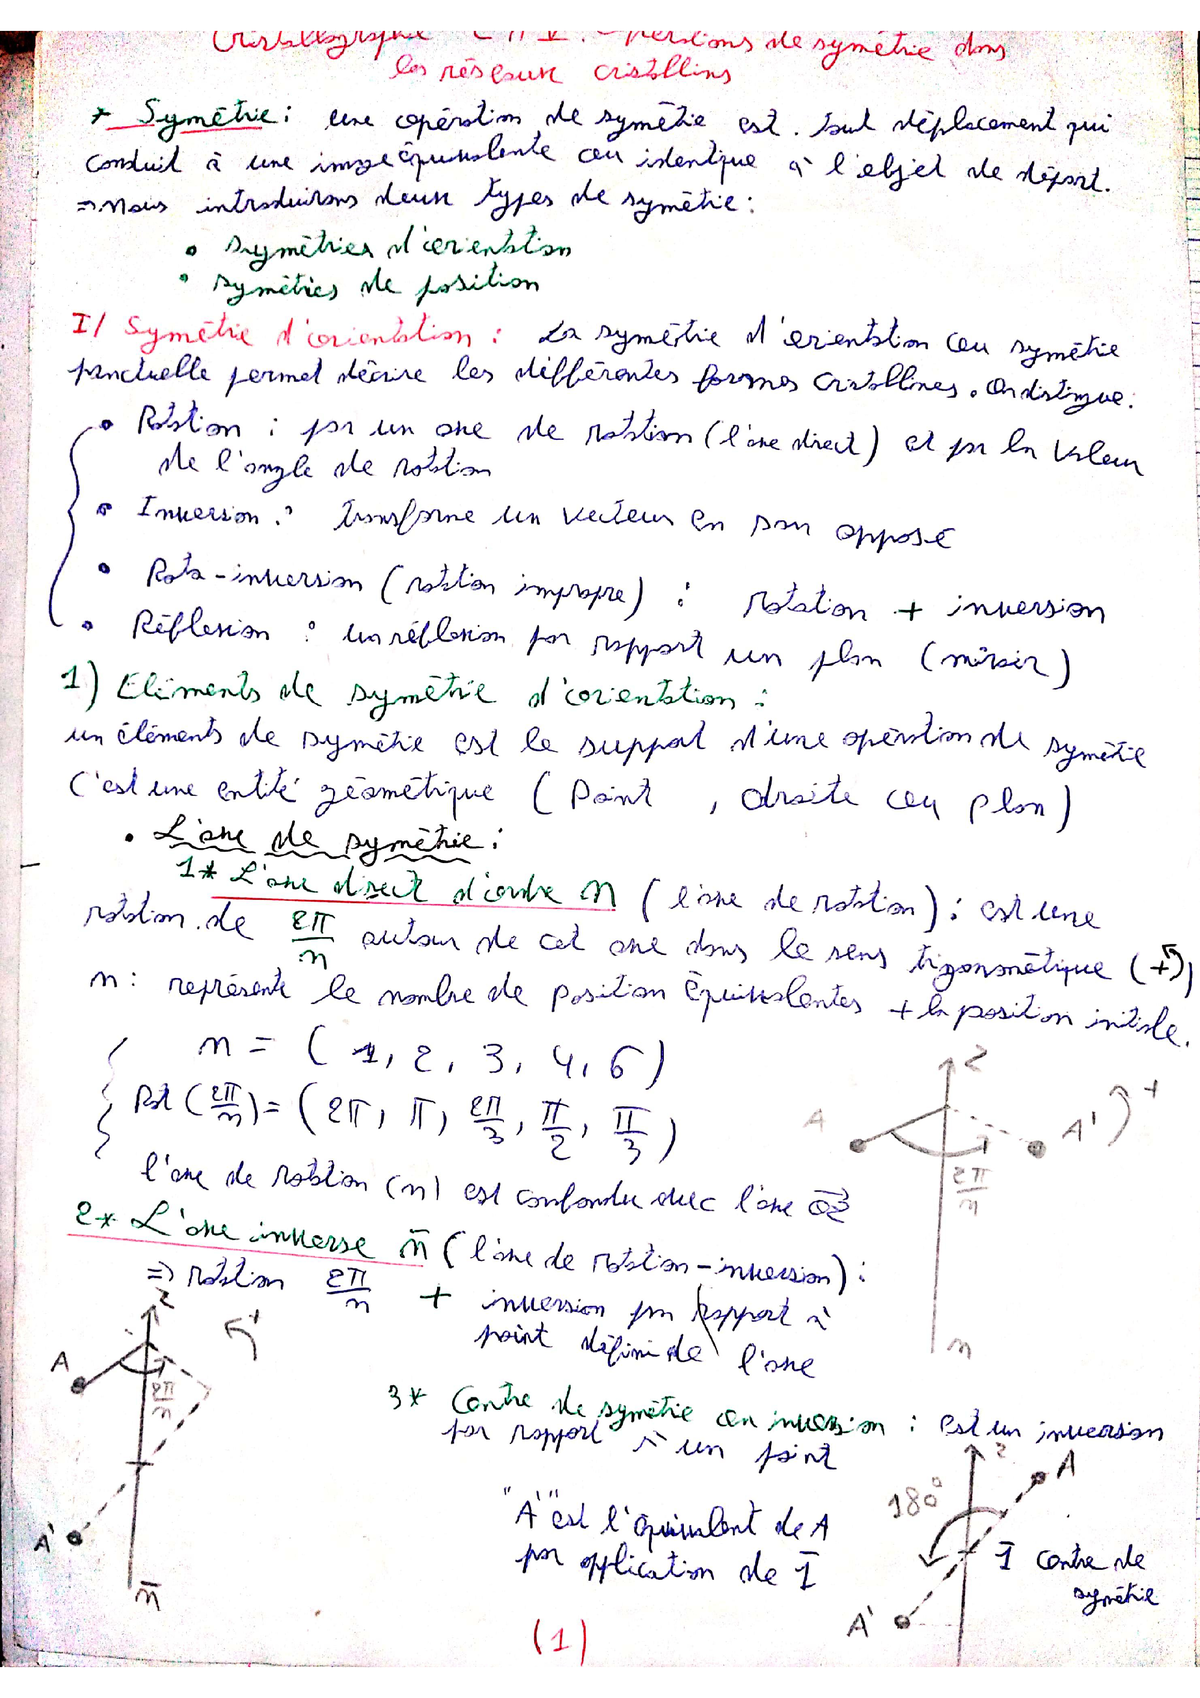 Cristallographie : opérations de symétrie dans
les réseaux cristallins
* Symétrie : une opération de symétrie est. tout déplacement qui
conduit à une image équivalente ou identique à l'objet de départ.
⇒ nous introduirons deux types de symétrie :
• Symétries d'orientation
• symétries de position
I/ Symétrie d'orientation : La symétrie d'orientation ou symétrie
ponctuelle permet décrire les différentes formes cristallines. On distingue :
• Rotation : par un axe de rotation (l'axe direct) et par la valeur
de l'angle de rotation
• Inversion : transforme un vecteur en son opposé
• Rota-inversion (rotation impropre) : rotation + inversion
• Réflexion : un réflexion par rapport un plan (miroir)
1) Eléments de symétrie d'orientation :
un éléments de symétrie est le support d'une opération de symétrie
C'est une entité géométrique (Point , droite ou plan)
• L'axe de symétrie :
1* L'axe direct d'ordre n (l'axe de rotation) : est une
rotation de 2π/n autour de cet axe dans le sens trigonométrique (+)
n : représente le nombre de position équivalentes + la position initiale.
n = ( 1, 2, 3, 4, 6 )
Rot (2π/n) = (2π, π, 2π/3, π/2, π/3)
l'axe de rotation (n) est confondu avec l'axe oz
z
A
A'
+
2π/n
n
2* L'axe inverse n̄ (l'axe de rotation-inversion) :
⇒ rotation 2π/n + inversion par rapport à
point défini de l'axe
z
+
A
2π/n
A'
n̄
3* Centre de symétrie ou inversion : est un inversion
par rapport à un point
"A'" est l'équivalent de A
par application de 1̄
z
A
180°
1̄ Centre de
symétrie
A'
(1)